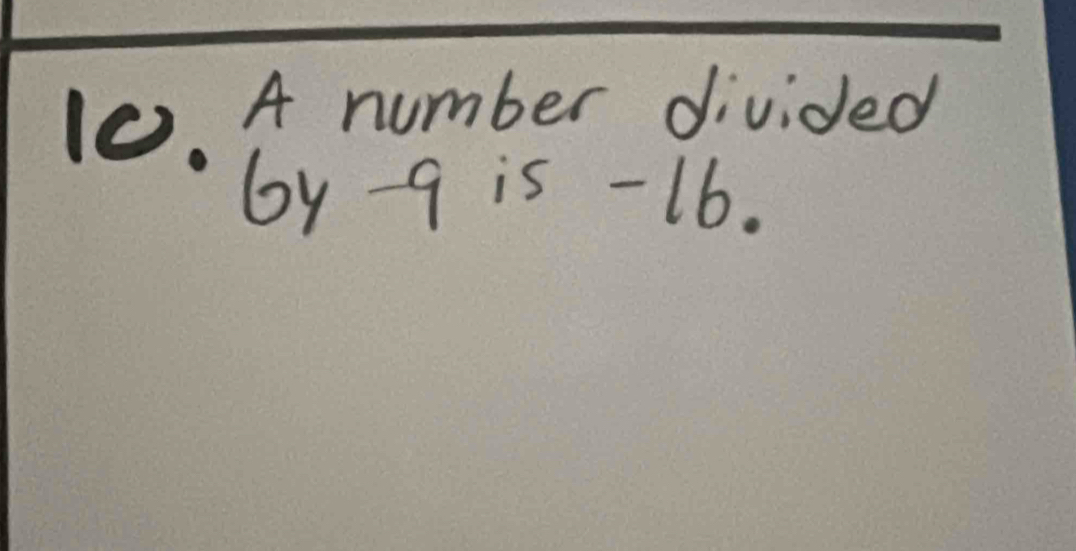 10. A number divided
by -9 is -16.